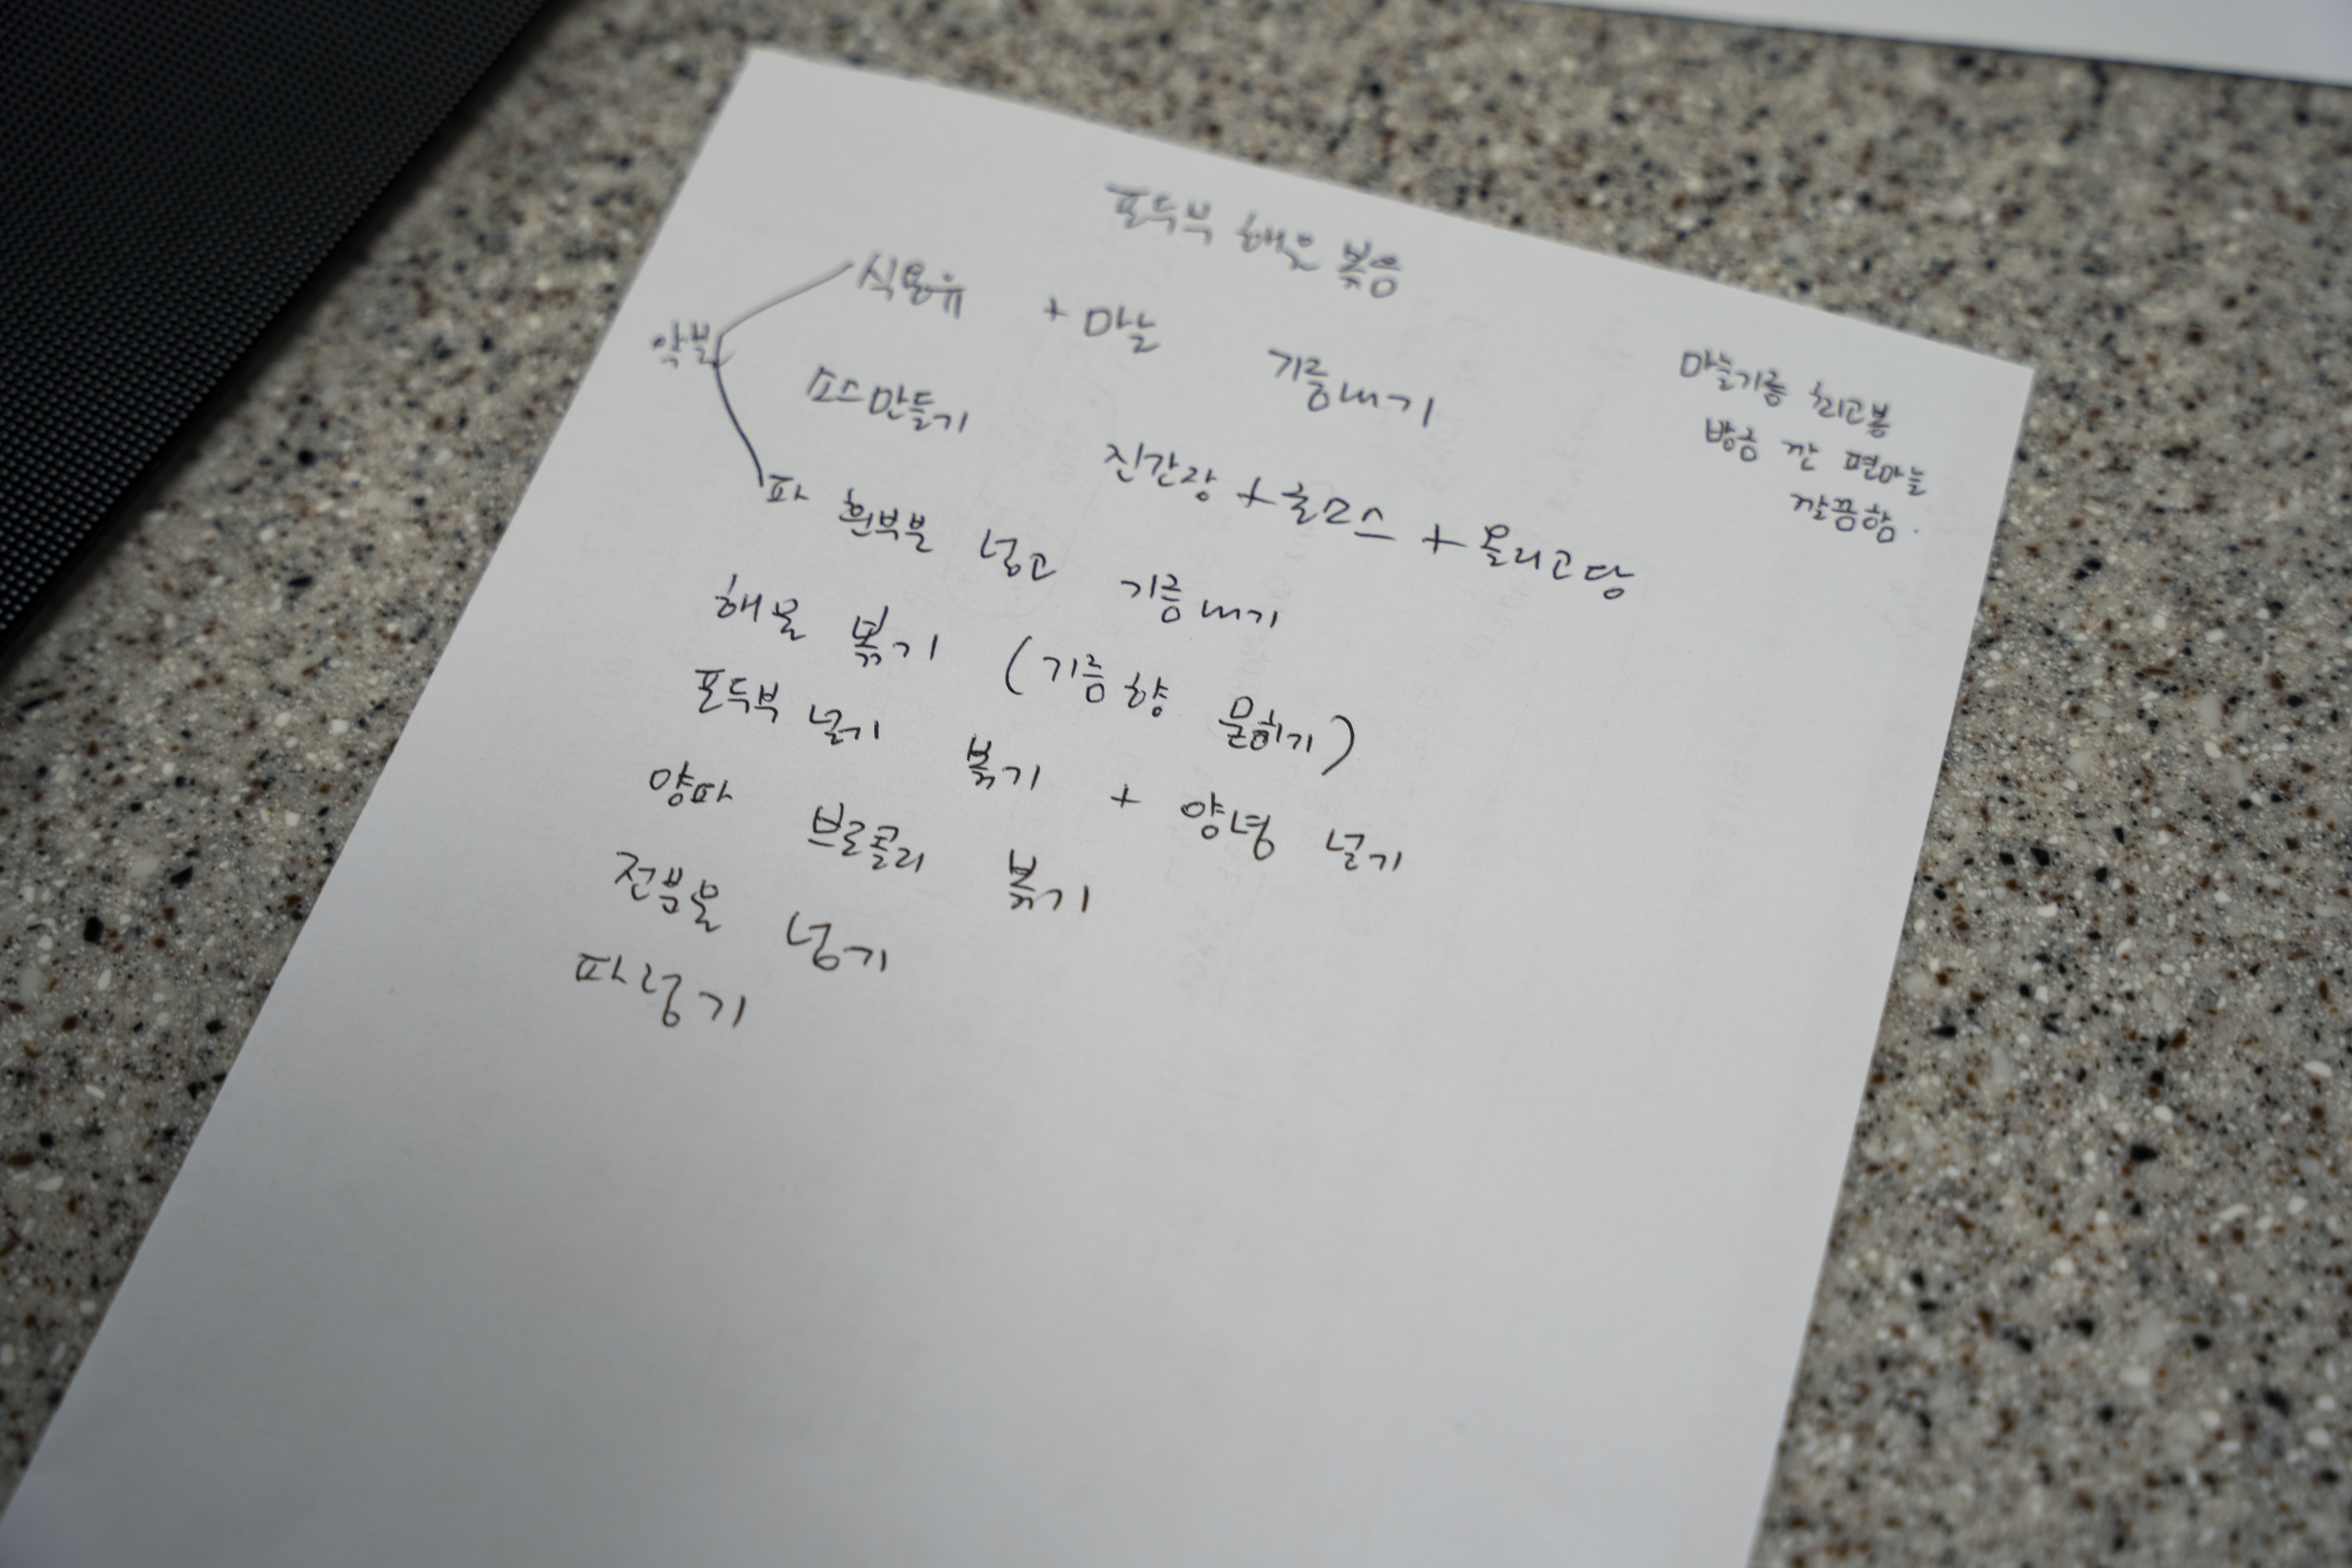 포두부 해물 볶음
식용유 + 마늘 기름내기
약불
소스만들기 진간장 + 굴소스 + 올리고당
파 흰부분 넣고 기름내기
해물 볶기 (기름향 묻히기)
포두부 넣기 볶기 + 양념 넣기
양파 브로콜리 볶기
전분물 넣기
파넣기
마늘기름 최고봉
방금 깐 편마늘
깔끔함.